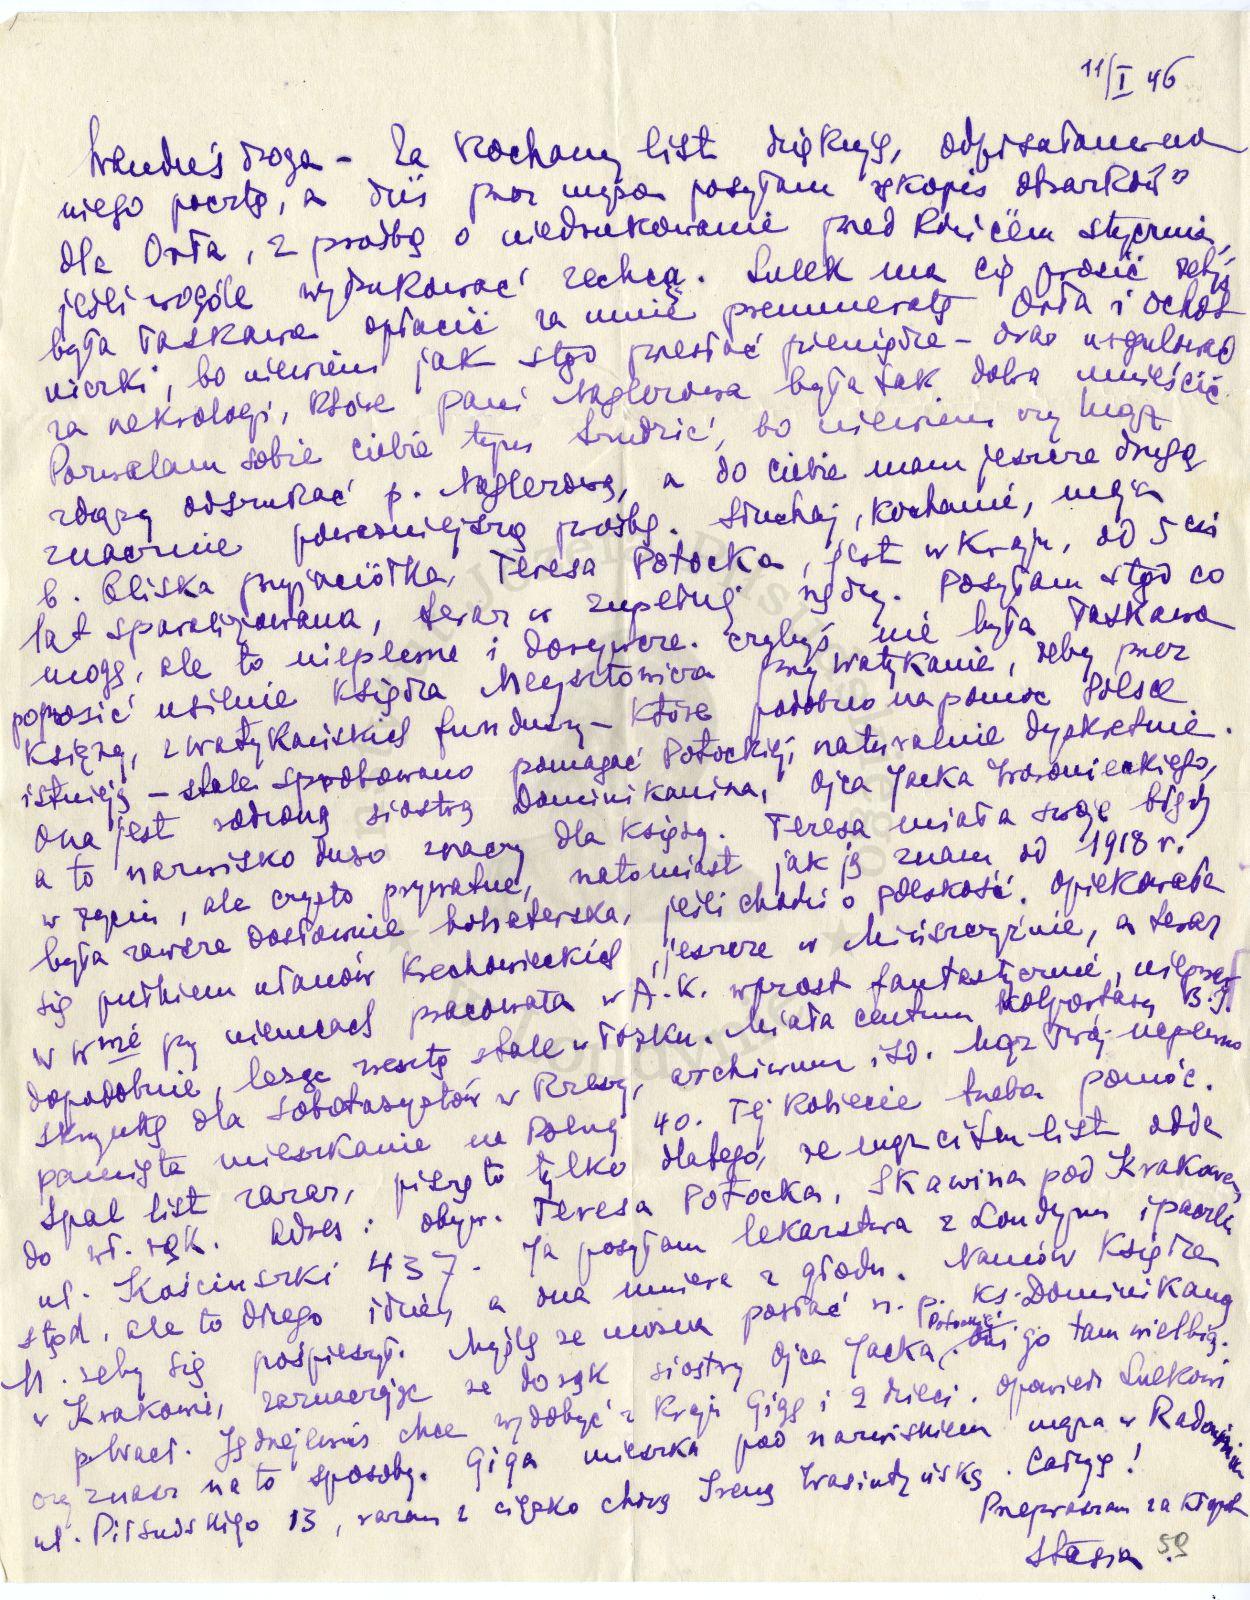 11/I 46
droga – Za kochany list dziękuję, odpisałam na
niego pocztą, a dziś przez męża posyłam rękopis
dla Orła, z prośbą o niedrukowanie przed końcem stycznia,
jeśli wogóle wydrukować zechcą. Lulek ma Cię prosić żebyś
była łaskawa opłacić za mnie prenumeratę Orła i Ochot
niczki, bo niewiem jak stąd przesłać pieniądze – oraz uregulować
za nekrologi, które pani Naglerowa była tak dobra umieścić.
Pozwalam sobie Ciebie tym trudzić, bo niewiem czy mąż
zdąży odszukać p. Naglerową, a do Ciebie mam jeszcze drugą
znacznie poważniejszą prośbę. Słuchaj, kochanie, moja
b. bliska przyjaciółka, Teresa Potocka, jest w Kraju, od 5 ciu
lat sparaliżowana, teraz w zupełnej nędzy. Posyłam stąd co
mogę, ale to niepewne i dorywcze. Czybyś nie była łaskawa
poprosić usilnie księdza Meysztowicza przy Watykanie, żeby przez
księży, z watykańskich funduszy – które podobno na pomoc Polsce
istnieją – stale spróbowano pomagać Potockiej, naturalnie dyskretnie.
Ona jest rodzoną siostrą Dominikanina, Ojca Jacka Woronieckiego,
a to nazwisko dużo znaczy dla księży. Teresa miała swoje błędy
w życiu, ale czysto prywatne, natomiast jak ją znam od 1918 r.
była zawsze dosłownie bohaterska, jeśli chodzi o polskość. Opiekowała
się pułkiem ułanów Krechowieckich jeszcze w Mińszczyźnie, a teraz
w w-wie przy niemcach pracowała w A.K. wprost fantastycznie, niepraw
dopodobnie, leżąc zresztą stale w łóżku. Miała centrum kolportażu B.I.
skrzynkę dla sabotażystów w Rzeszy, archiwum itd. Mąż Twój napewno
pamięta mieszkanie na Polnej 40. Tej kobiecie trzeba pomóc.
Spal list zaraz, piszę to tylko dlatego, że mąż Ci ten list odda
do wł. rąk. Adres: obyw. Teresa Potocka, Skawina pod Krakowem,
ul. Kościuszki 437. Ja posyłam lekarstwa z Londynu i paczki
stąd, ale to długo idzie, a ona umiera z głodu. Namów Księdza
M. żeby się pośpieszył. Myślę że można posłać n. p. ks. Dominikanom
w Krakowie, zaznaczając że do rąk siostry Ojca Jacka, Potockiej. Oni go tam wielbią.
chce wydobyć z Kraju Gigę i 2 dzieci. Opowiedz Lulkowi
czy znasz na to sposoby. Giga mieszka pod nazwiskiem męża w
ul. Piłsudskiego 13, razem z ciężko chorą Ireną. Całuję!
Przepraszam za kłopot
Stasia.
59